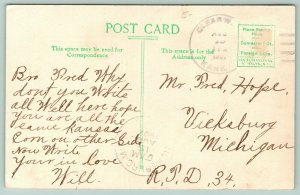 POST CARD
This space may be used for
Correspondence
This space is for the
Address only
CLEARW
KANS.
Bro Fred Why
dont you Write
all Well here hope
you are all the
same Kansas
Corn on other Side
Now Write
Your in love
Will.
Mr. Fred, Hope,
Vicksburg
Michigan
R. F. D. 34.